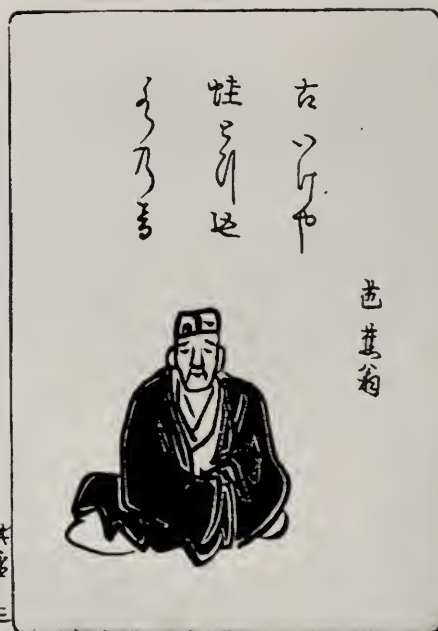 芭蕉翁
古いけや
蛙とび込
水乃音